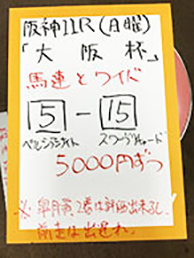 阪神11R(月曜)
「大阪杯」
馬連とワイド
5-15
ペルシアンナイト スワーヴリチャード
5000円ずつ
※皐月賞2着は評価出来るし、
前走は出遅れ。